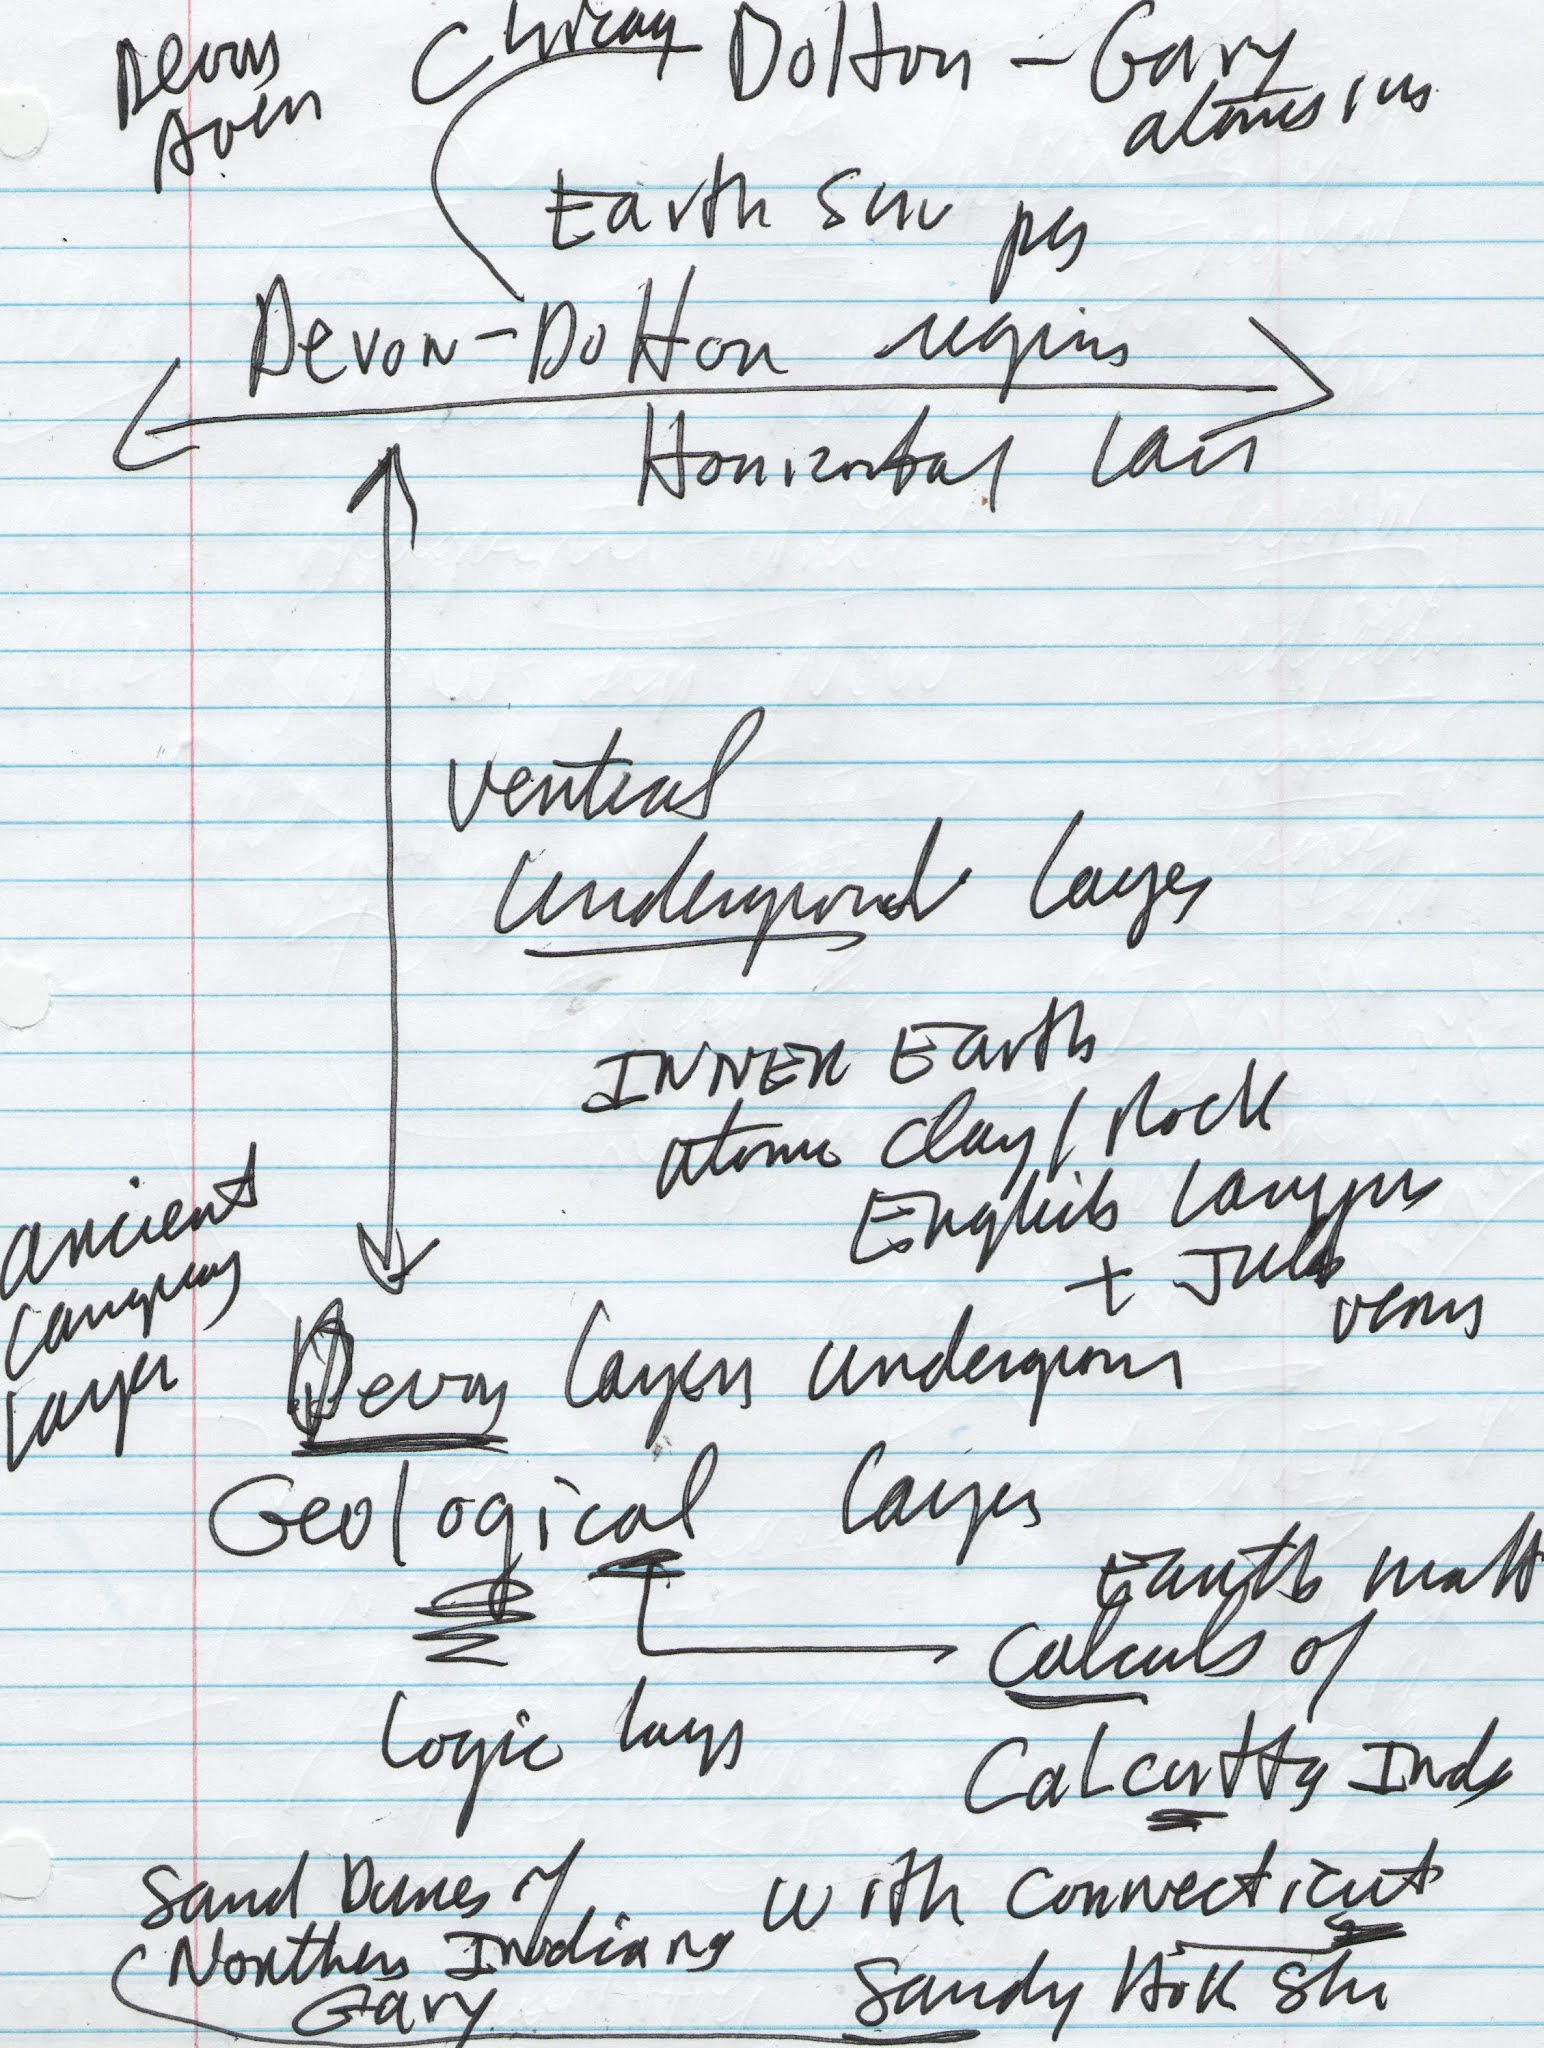 Devon
Aven
Chicag Dolton - Gary
atomes
Earth
Devon-Dolton regions
Horizontal
Vertical
Underground layes
INNER Earth
atomic Clay / Rock
English
+
Venus
ancient
language
layer
Devon layers underground
Geological layers
Earth math
Calculs of
Logic lays
Calcutta Inda
Sand Dunes of
Northern Indiana
Gary
with Connecticut
Sandy Hok